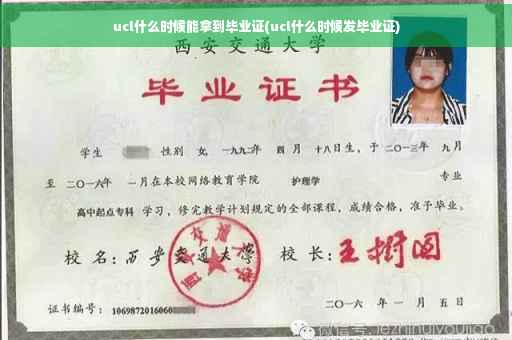 ucl什么时候能拿到毕业证(ucl什么时候发毕业证)
西安交通大学
毕业证书
学生 性别 女, 一九九二年 四月 十八日生, 于二〇一三年 九月
至 二〇一六年 一月在本校网络教育学院 护理学 专业
高中起点专科 学习, 修完教学计划规定的全部课程, 成绩合格, 准予毕业。
校 名: 西安交通大学 校 长: 王树国
证书编号: 1069872016060
二〇一六 年 一 月 五 日
微信号: jezhinuiyoujiao